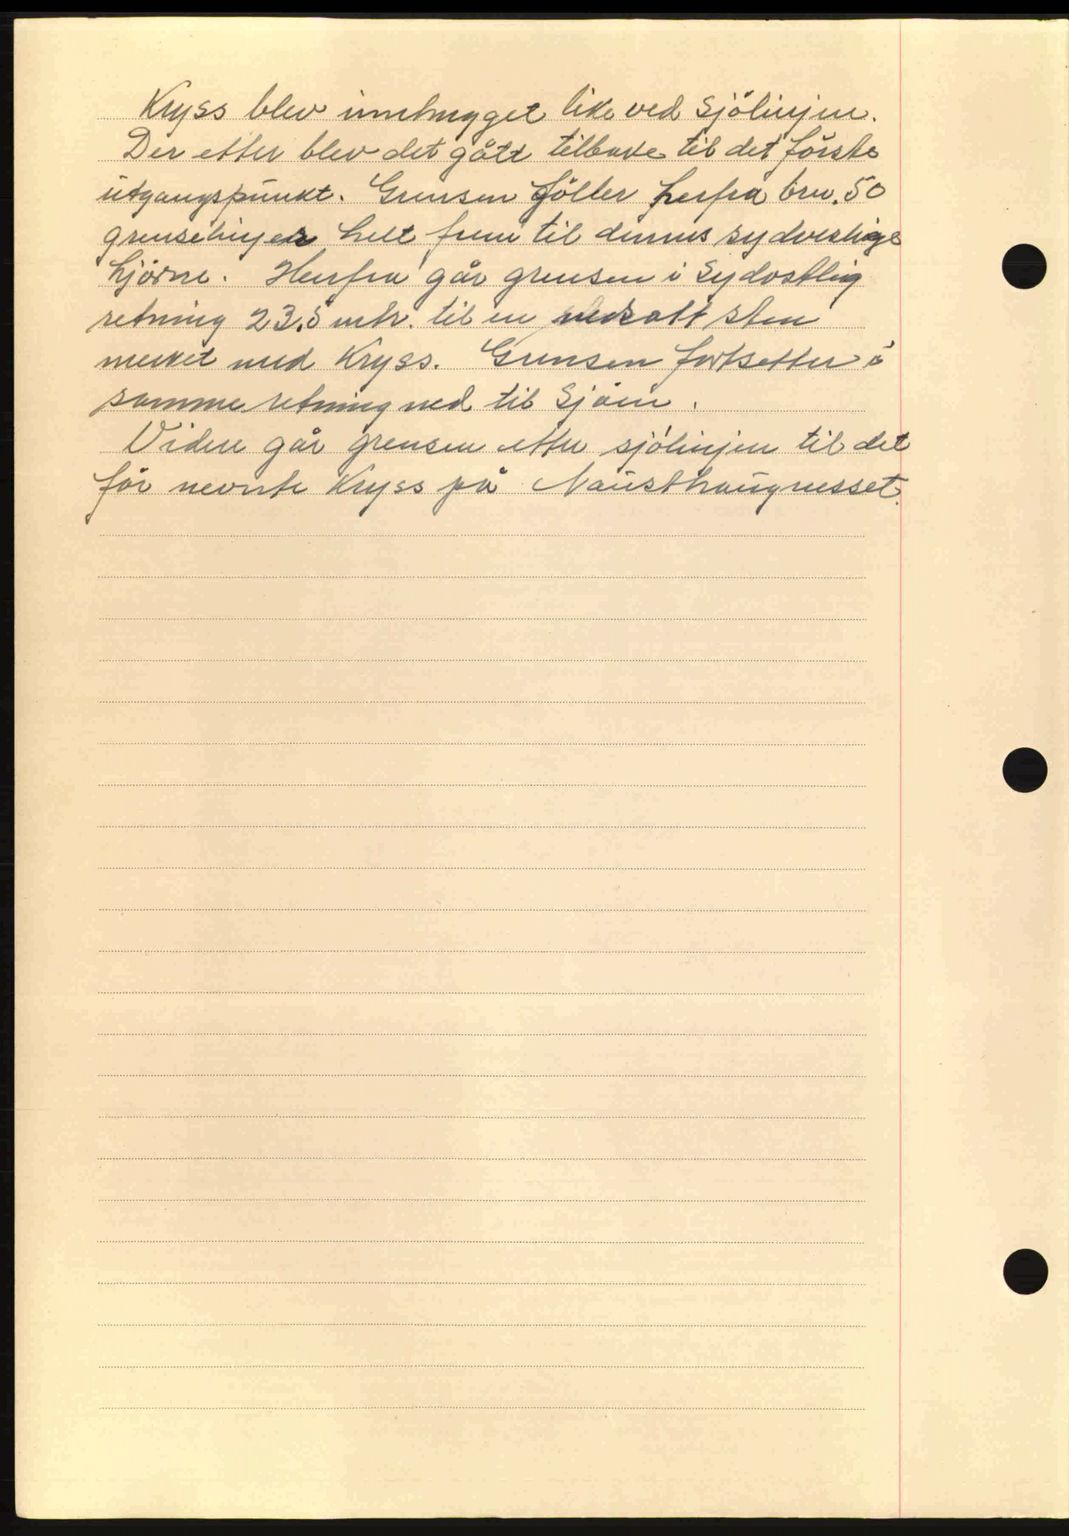 Kryss blev innhugget like ved Sjölinjen.
Der etter blev det gått tilbake til det förste
utgangspunkt. Grensen föller herfra brn. 50
grenselinjer helt frem til dennes sydvestlige
hjörne. Herfra går grensen i Sydostlig
retning 23.5 mtr. til en nedsatt sten
merket med Kryss. Grensen fortsetter i
samme retning ned til Sjöen.
Videre går grensen etter sjölinjen til det
för nevnte Kryss på Nausthaugnesset.